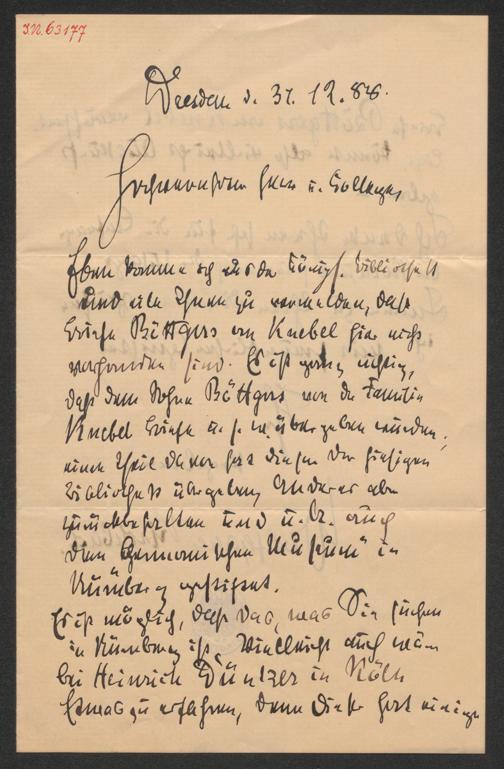 J.N. 63177
Dresden d. 31. 12. 88.
Hochverehrter Herr u. College,
Eben komme ich aus der königl. Bibliothek
und eile Ihnen zu vermelden, daß
Briefe Böttgers an Knebel hier nicht
vorhanden sind. Es ist ganz richtig,
daß dem Sohne Böttgers von der Familie
Knebel Briefe übergeben wurden;
einen Theil davon hat dieser der hiesigen
Bibliothek übergeben, Anderes aber
zurückbehalten und u. A. auch
dem Germanischen Museum in
Nürnberg gestiftet.
Es ist möglich, daß das, was Sie suchen
in Nürnberg ist. Vielleicht auch wäre
bei Heinrich Düntzer in Köln
Etwas zu erfahren, denn dieser hat einige